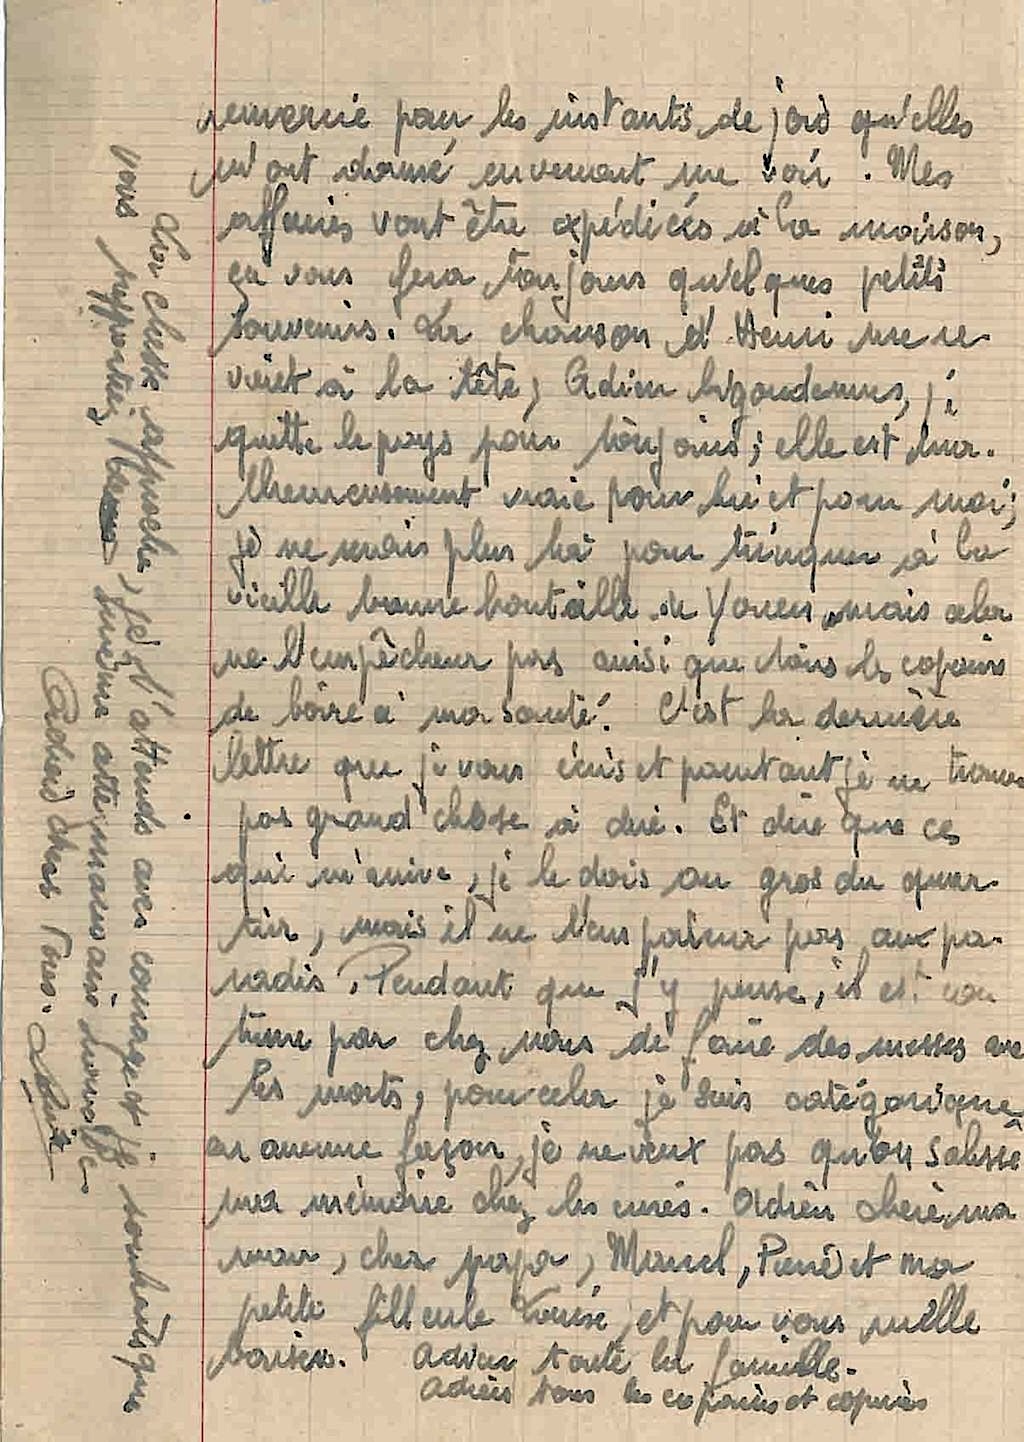 remercie pour les instants de joie qu'elles
m'ont donné en venant me voir. Mes
affaires vont être expédiées à la maison,
ça vous fera toujours quelques petits
souvenirs. La chanson d'Henri me re-
vient à la tête, Adieu bigoudennes, je
quitte le pays pour toujours; elle est mal-
heureusement vraie pour lui et pour moi;
je ne serais plus là pour trinquer à la
vieille bonne bouteille de Youen, mais cela
ne l'empêchera pas ainsi que tous les copains
de boire à ma santé. C'est la dernière
lettre que je vous écris et pourtant je ne trouve
pas grand chose à dire. Et dire que ce
qui m'arrive, je le dois au gros du quar-
tier, mais il ne l'emportera pas au pa-
radis. Pendant que j'y pense, il est cou
tume par chez nous de faire des messes avec
les morts, pour cela je suis catégorique
en aucune façon, je ne veux pas qu'on salisse
ma mémoire chez les curés. Adieu chère ma
man, cher papa, Marcel, Pierre et ma
petite filleule Louise, et pour vous mille
baisers. Adieu toute la famille.
Adieu tous les copains et copines
L'heure approche, je l'attends avec courage et je souhaite que
vous supportiez même
Adieu chers Tous.